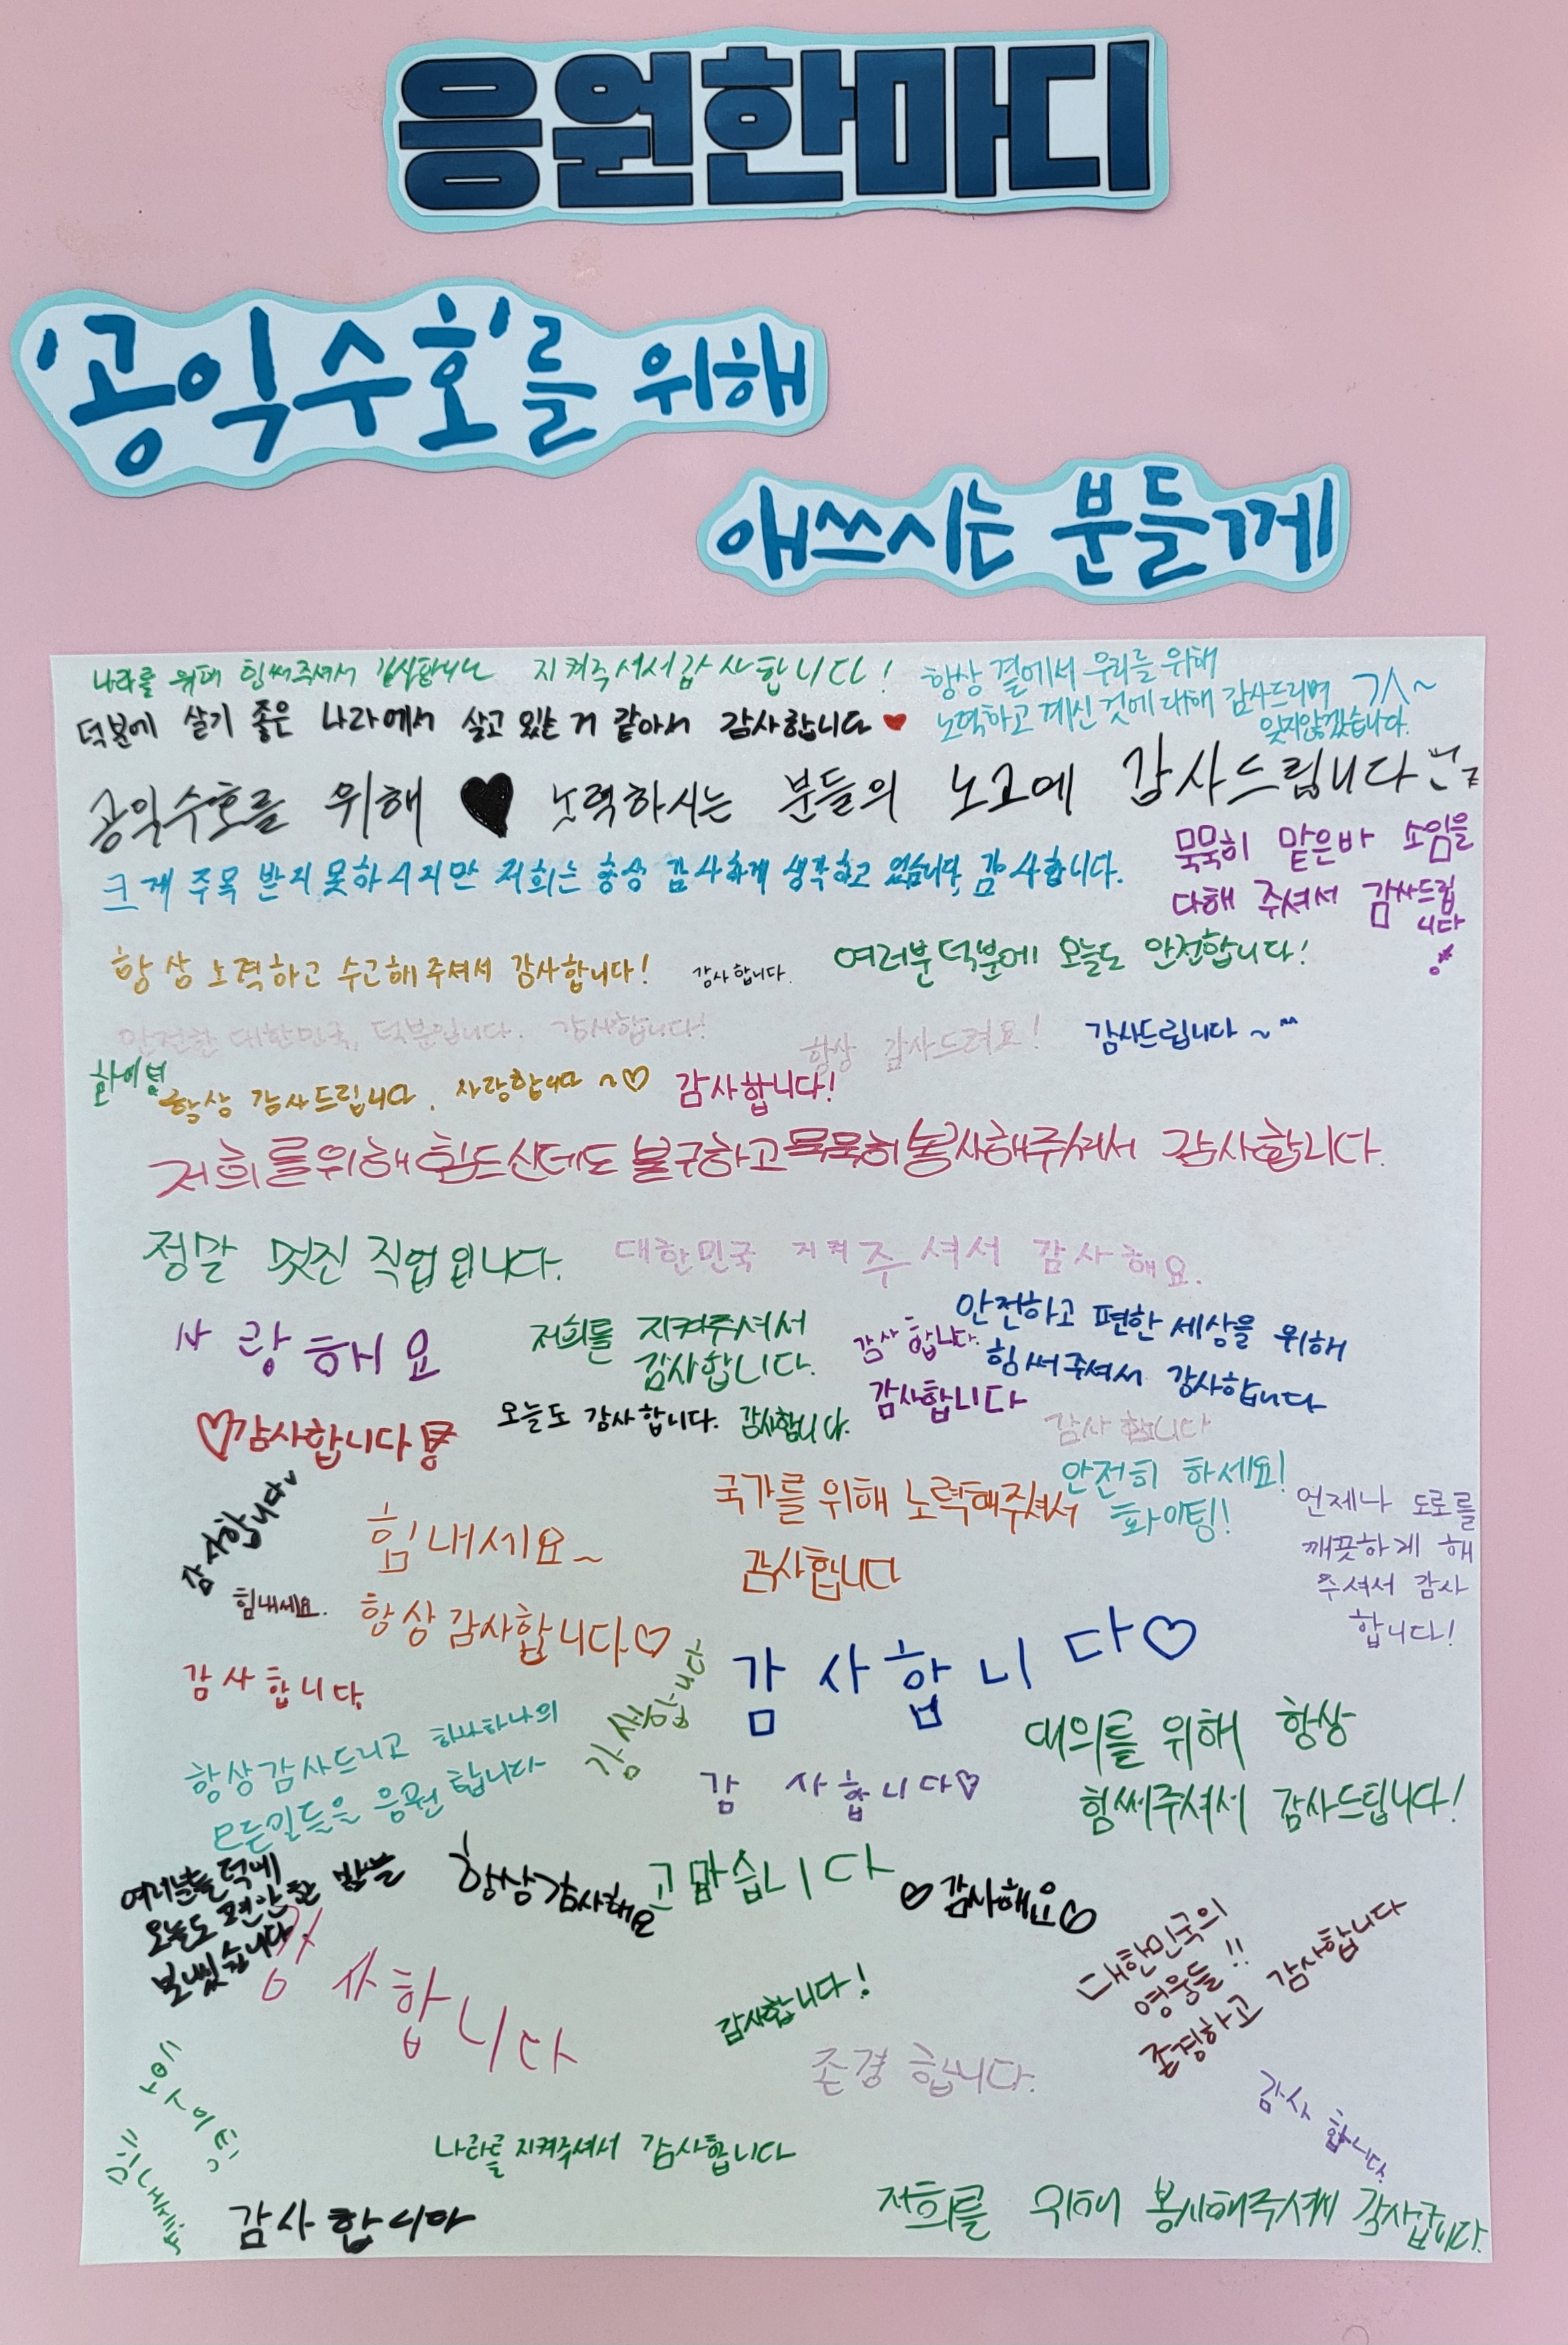 응원한마디
'공익수호'를 위해
애쓰시는 분들께
나라를 위해 힘써주셔서 감사합니다 지켜주셔서 감사합니다!
항상 곁에서 우리를 위해
노력하고 계신 것에 대해 감사드리며
잊지않겠습니다.
덕분에 살기 좋은 나라에서 살고 있는 거 같아서 감사합니다♥
공익수호를 위해 ♥ 노력하시는 분들의 노고에 감사드립니다
크게 주목 받지 못하시지만 저희는 항상 감사하게 생각하고 있습니다, 감사합니다.
묵묵히 맡은바 소임을
다해 주셔서 감사드립
니다
항상 노력하고 수고해 주셔서 감사합니다! 감사합니다.
여러분 덕분에 오늘도 안전합니다!
안전한 대한민국, 덕분입니다. 감사합니다!
항상 감사드려요!
감사드립니다~^^
화이팅
항상 감사드립니다. 사랑합니다~♡
감사합니다!
저희를위해 힘드신데도 불구하고 묵묵히 봉사해주셔서 감사합니다.
정말 멋진 직업입니다.
대한민국 지켜주셔서 감사해요.
사랑해요
저희를 지켜주셔서
감사합니다.
감사합니다.
안전하고 편한 세상을 위해
힘써주셔서 감사합니다
감사합니다
♡감사합니다
오늘도 감사합니다. 감사합니다.
감사합니다
감사합니다
힘내세요~
국가를 위해 노력해주셔서
감사합니다
안전히 하세요!
화이팅!
언제나 도로를
깨끗하게 해
주셔서 감사
합니다!
힘내세요.
항상 감사합니다♡
감사합니다.
감사합니다
감사합니다♡
항상 감사드리고 하나하나의
모든일들을 응원합니다
감사합니다♡
대의를 위해 항상
힘써주셔서 감사드립니다!
여러분들 덕에
오늘도 편안한 밤을
보냈습니다.
항상 감사해요
고맙습니다
♡감사해요♡
감사합니다
감사합니다!
대한민국의
영웅들!!
존경하고 감사합니다
존경합니다.
감사합니다.
화이팅
나라를 지켜주셔서 감사합니다
감사합니다
저희를 위해 봉사해주셔서 감사합니다.